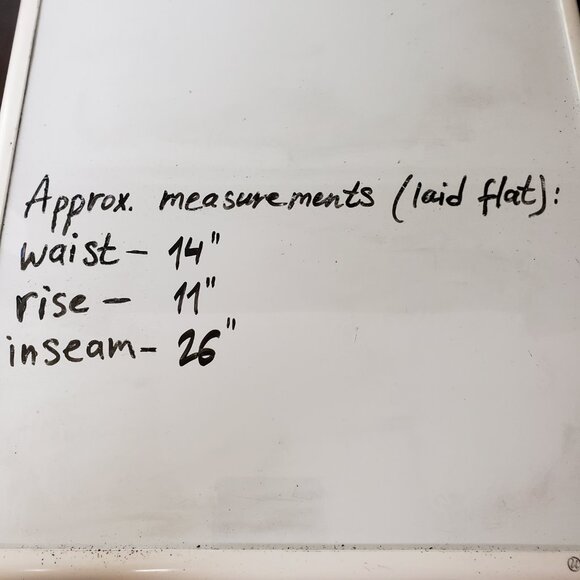 Approx. measurements (laid flat):
waist- 14"
rise - 11"
inseam- 26"